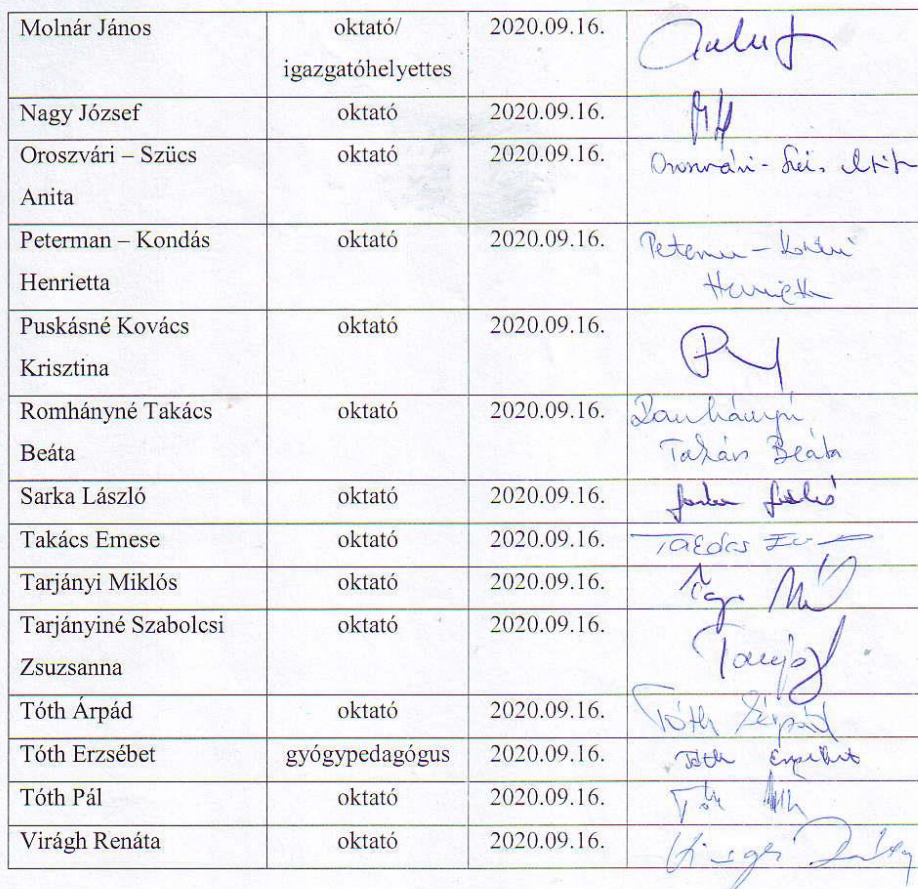 Molnár János oktató/ 2020.09.16.
igazgatóhelyettes
Nagy József oktató 2020.09.16.
Oroszvári – Szücs oktató 2020.09.16. Oroszvári-
Anita
Peterman – Kondás oktató 2020.09.16.
Henrietta
Puskásné Kovács oktató 2020.09.16.
Krisztina
Romhányné Takács oktató 2020.09.16. Romhányné
Beáta Takács Beáta
Sarka László oktató 2020.09.16. Sarka László
Takács Emese oktató 2020.09.16. Takács
Tarjányi Miklós oktató 2020.09.16.
Tarjányiné Szabolcsi oktató 2020.09.16.
Zsuzsanna
Tóth Árpád oktató 2020.09.16. Tóth Árpád
Tóth Erzsébet gyógypedagógus 2020.09.16. Tóth Erzsébet
Tóth Pál oktató 2020.09.16.
Virágh Renáta oktató 2020.09.16.